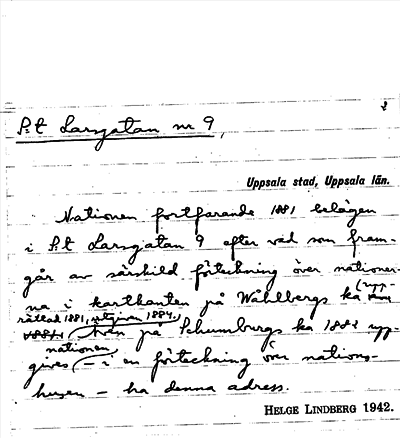 2
S:t Larsgatan nr 9,
Uppsala stad, Uppsala län.
Nationen fortfarande 1881 belägen
i S:t Larsgatan 9 efter vad som fram-
går av särskild förteckning över nationer-
na i kartkanten på Wåhlbergs ka (upp-
rättad 1881, utgiven 1884.)
Även på Schumburgs ka 1882 upp-
gives nationen – i en förteckning över nations-
husen – ha denna adress.
HELGE LINDBERG 1942.